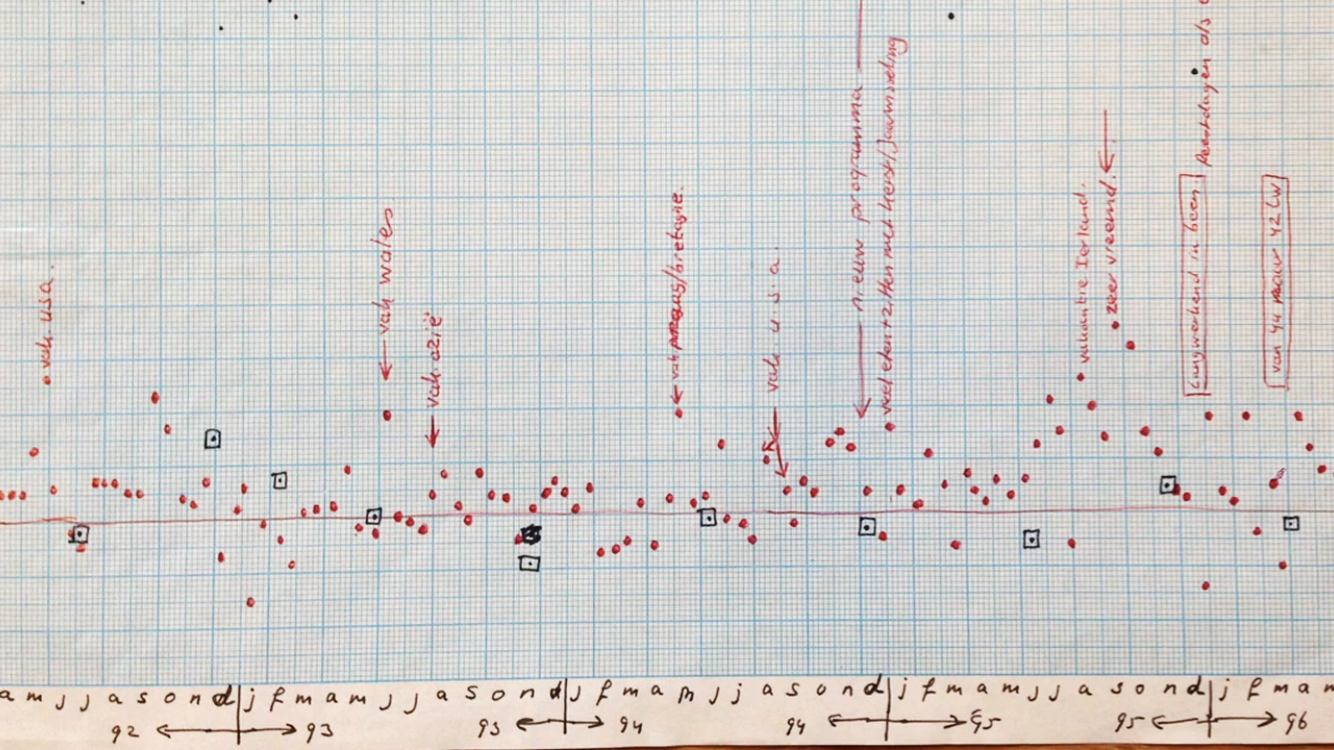 vak. usa.
vak wales
vak. azië
vak praag/bretagne.
vak. u.s.a.
nieuw programma
veel eten+zitten met kerst/jaarwisseling
vakantie Ierland.
zeer vreemd.
Langwerkend in been
Feestdagen als
van 44 naar 42 LW
a m j j a s o n d j f m a m j j a s o n d j f m a m j j a s o n d j f m a m j j a s o n d j f m a m
92 93 93 94 94 95 95 96